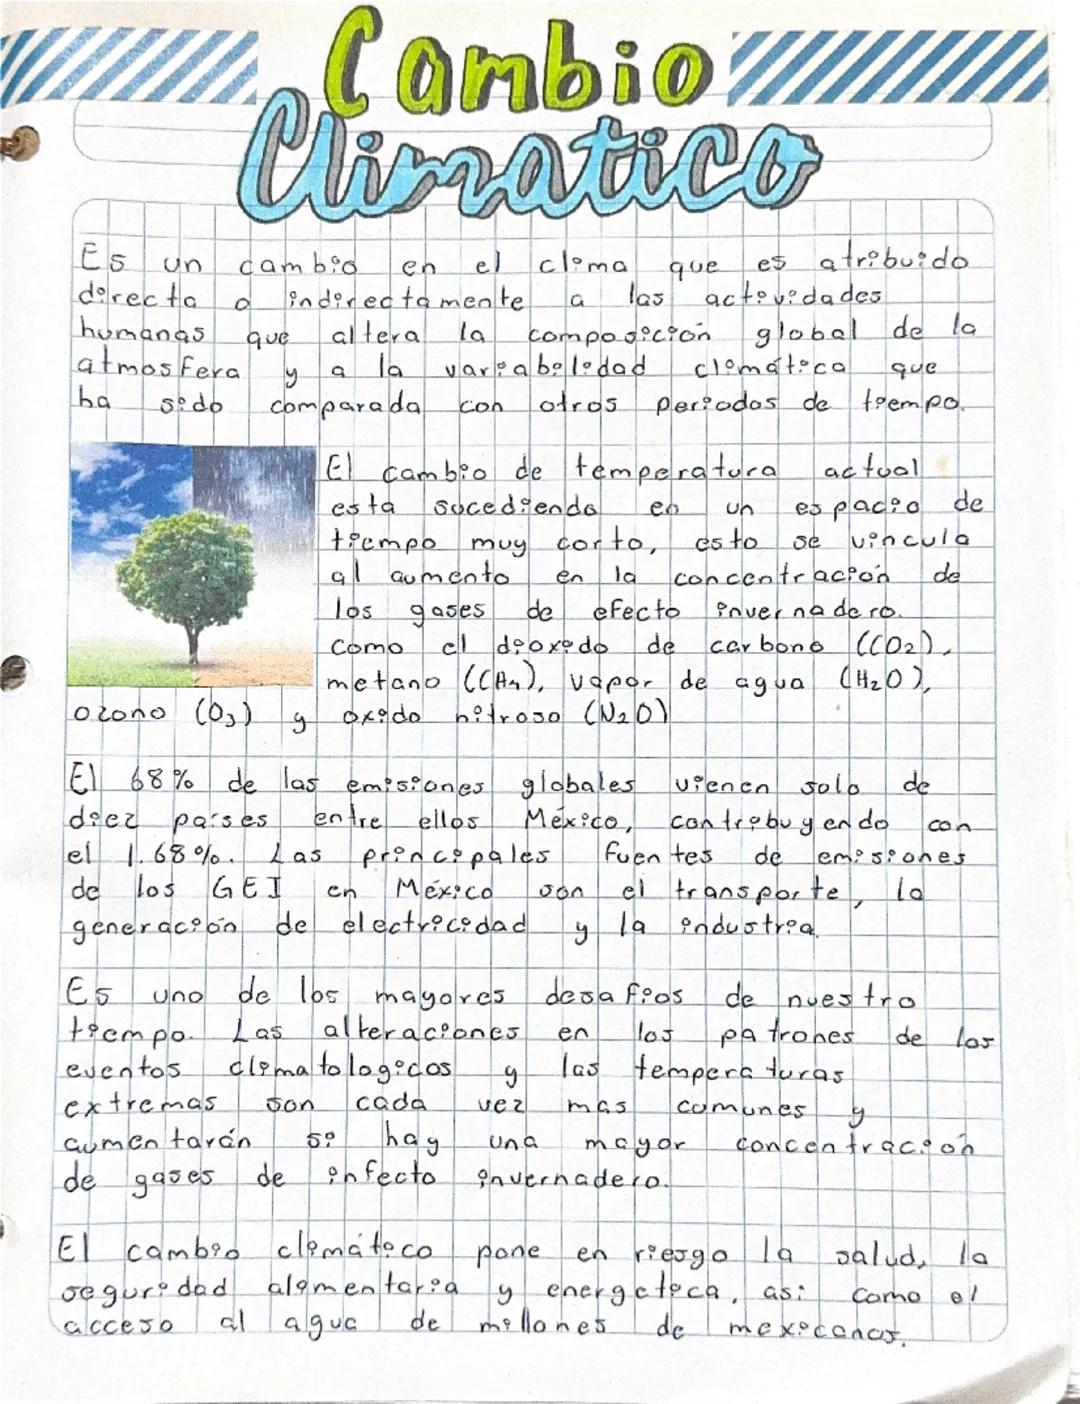 Cambio
Climatico
Es un cambio en el clima que es atribuido
directa o indirectamente a las actividades
humanas que altera la composición global de la
atmosfera y a la variabelidad climática que
ha sido comparada con otros periodos de tiempo.
El cambio de temperatura actual
esta sucediendo en un espacio de
tiempo muy corto, esto se vincula
al aumento en la concentración de
los gases de efecto invernadero.
como el dioxido de carbono (CO2),
metano (CH4), vapor de agua (H2O),
ozono (O3) y oxido nitroso (N2O)
El 68% de las emisiones globales vienen solo de
diez países entre ellos México, contribuyendo con
el 1.68%. Las principales fuentes de emisiones
de los GEI en México son el transporte, la
generación de electricidad y la industria.
Es uno de los mayores desafios de nuestro
tiempo. Las alteraciones en los patrones de los
eventos climatologicos y las temperaturas
extremas son cada vez mas comunes y
aumentarán si hay una mayor concentración
de gases de infecto invernadero.
El cambio climático pone en riesgo la salud, la
seguridad alimentaria y energetica, asi como el
acceso al agua de millones de mexicanos.